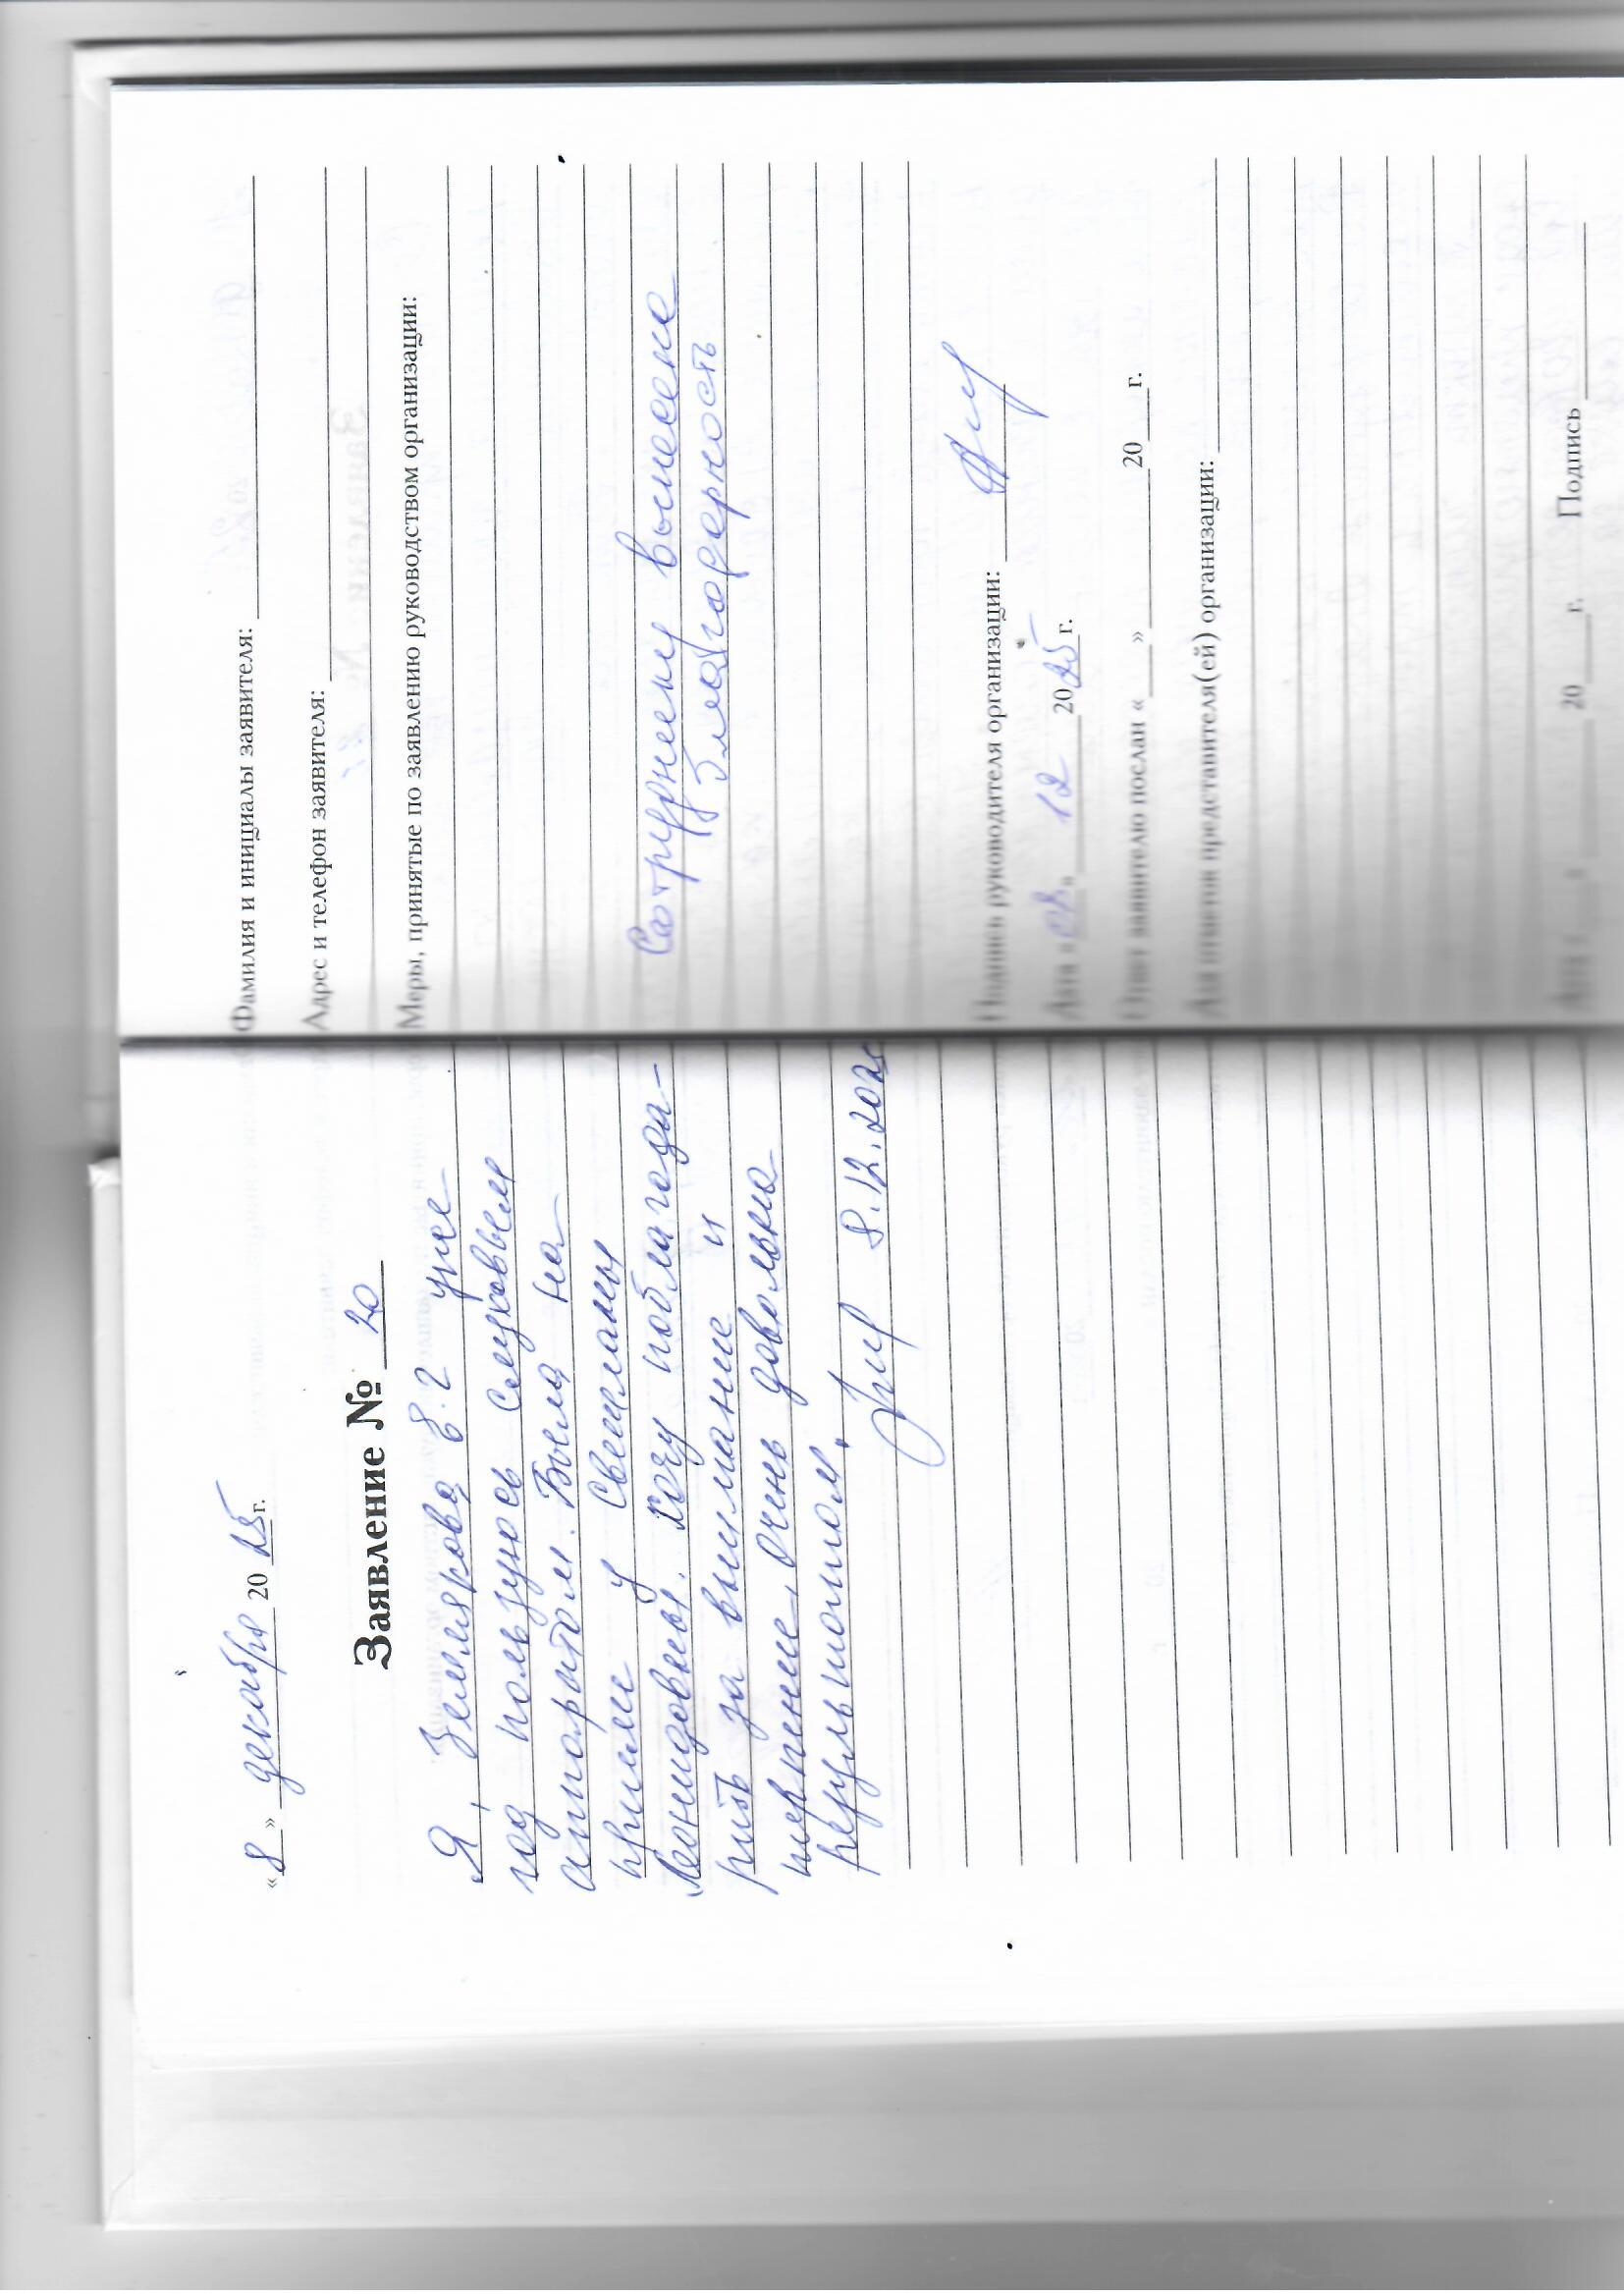 « 8 » декабря 20 25 г.
Заявление № 20
Я, Землярова В.Г уже
год пользуюсь слуховым
аппаратом. Была на
приеме у Светланы
Леонидовны. Хочу поблагода-
рить за внимание и
терпение. Очень довольна
результатом.
8.12.2025
Фамилия и инициалы заявителя:
Адрес и телефон заявителя:
Меры, принятые по заявлению руководством организации:
Сотруднику вынесена
благодарность
Подпись руководителя организации:
Дата « 08 » 12 20 25 г.
Ответ заявителю послан « » 20 г.
Для отметок представителя(ей) организации:
Дата « » 20 г. Подпись